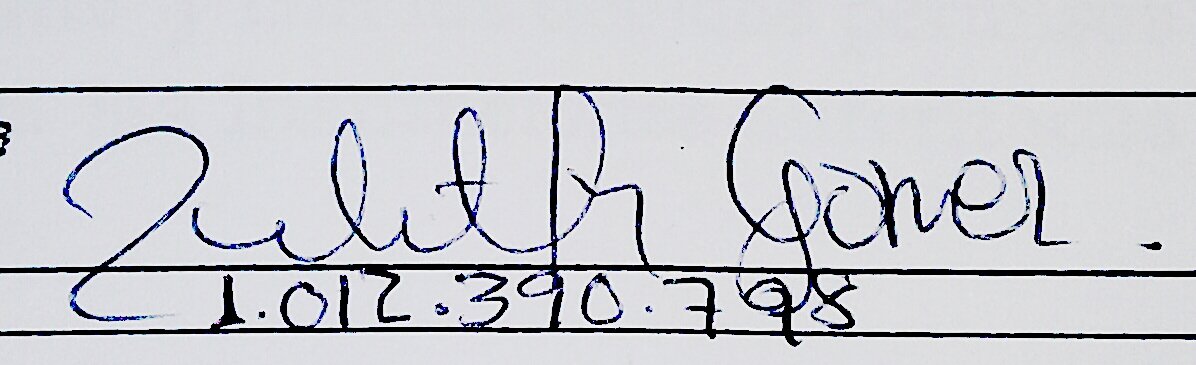 Julieth Gómez.
1.012.390.798